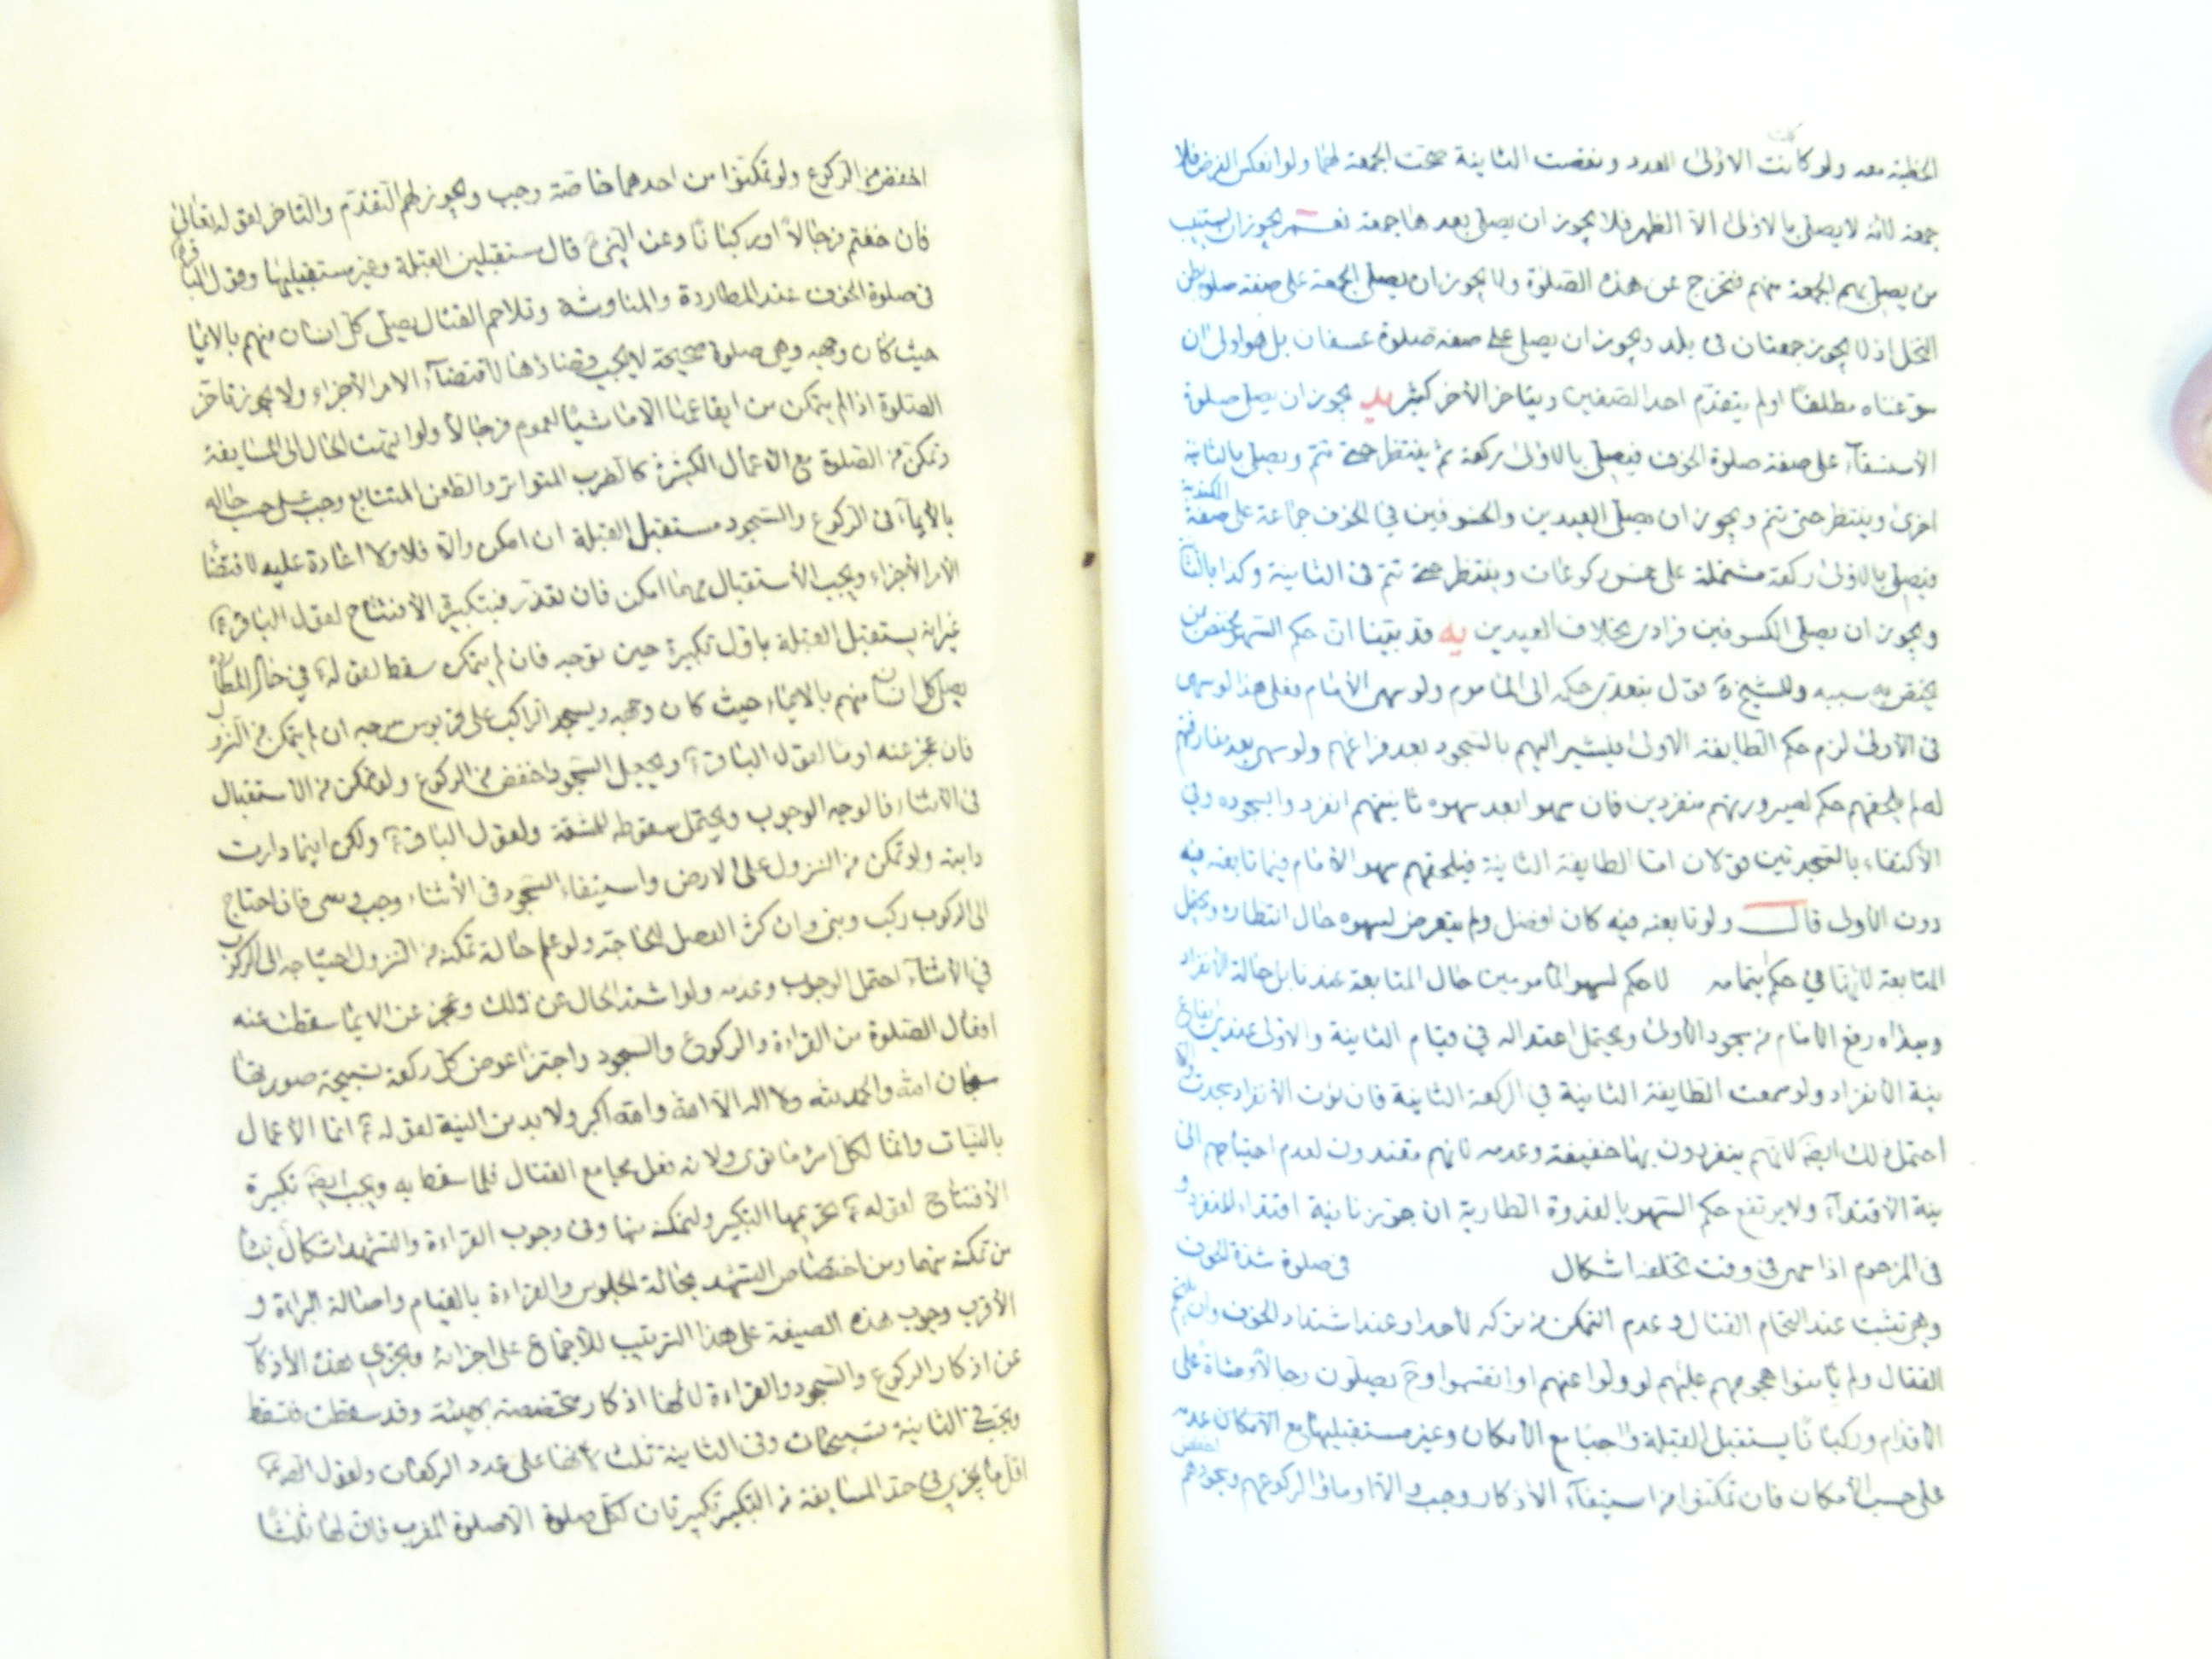 الخطبة معه ولو كانت الاولى العدد ونقصت الثانية صحت الجمعة لهما ولو انعكس الفرض فلا
جمعة لانه لا يصلى بالاولى الا الظهر فلا يجوز ان يصلى بعدها جمعة نعم يجوز ان يستنيب
من يصلى بهم الجمعة منهم فتخرج عن هذه الصلوة ولا يجوز ان يصلى الجمعة على صفة صلوة بطن
النخل اذ لا يجوز جمعتان فى بلد ويجوز ان يصلى على صفة صلوة عسفان بل هو اولى ان
سوغناه مطلقا او لم يتقدم احد الصفين ويتاخر الأخر كثير يد يجوز ان يصلى صلوة
الأستسقآء على صفة صلوة الخوف فيصلى بالاولى ركعة ثم ينتظر حتى تتم ويصلى بالثانية
اخرى وينتظر حتى تتم ويجوز ان يصلى العيدين والخسوفين فى الخوف جماعة على صفة المكتوبة
فيصلى بالاولى ركعة مشتملة على خمس ركوعات وينتظر حتى تتم فى الثانية وكذا بالثانية
ويجوز ان يصلى الكسوفين فرادى بخلاف العيدين يه قد بينا ان حكم السهو مختص بمن
يختص به سببه وللشيخ ره قول بتعدى حكمه الى الماموم ولو سهى الأمام فعلى هذا لو سهى
فى الأولى لزم حكم الطايفة الاولى فليشير اليهم بالسجود بعد فراغهم ولو سهى بعد مفارقتهم
له لم يلحقهم حكم لصيرورتهم منفردين فان سهوا بعد سهوه ثانيتهم انفردوا بسجوده وفى
الأكتفاء بالسجدتين قولان اما الطايفة الثانية فيلحقهم سهو الأمام فيما تابعته فيه
دون الأولى قال ولو تابعته فيه كان افضل ولم يتعرض لسهوه حال انتظاره ويحتمل
المتابعة لأنها فى حكم ايتمامه لا حكم لسهو المأمومين حال المتابعة عندنا بل حالة الأنفراد
ومبداه رفع الأمام من سجود الأولى ويحتمل اعتداله فى قيام الثانية والاولى عندى ايقاع
نية الأنفراد ولو سمعت الطايفة الثانية فى الركعة الثانية فان نوت الأنفراد سجدت والا
احتمل ذلك ايضا لانهم ينفردون بها حقيقة وعدمه لانهم مقتدون لعدم احتياجهم الى
نية الأقتدآء ولا يرتفع حكم السهو بالقدوة الطارية ان جوزنا نية اقتداء المنفرد و
فى المزحوم اذا سهى فى وقت تخلفه اشكال فى صلوة شدة الخوف
وهى تثبت عند التحام القتال وعدم التمكن من تركه لأحد او عند اشتداد الخوف وان لم يلتحم
القتال ولم يأمنوا هجومهم عليهم لو ولوا عنهم او انقسموا وح يصلون رجالا ومشاة على
الاقدام وركبانا يستقبل القبلة واجبا مع الأمكان وغير مستقبليها مع الأمكان عدمه
على حسب الأمكان فان تمكنوا من استيفآء الأذكار وجب والا اوماؤا لركوعهم وسجودهم اخفض
اخفض من الركوع ولو تمكنوا من احدهما خاصة وجب ويجوز لهم التقدم والتاخر لقوله تعالى
فان خفتم فرجالا او ركبانا وعن النبى ص قال مستقبلين القبلة وغير مستقبليها وقول الباقر ع
فى صلوة الخوف عند المطاردة والمناوشة وتلاحم القتال يصلى كل انسان منهم بالايما
حيث كان وجهه وهى صلوة صحيحة لا يجب قضاؤها لاقتضآء الامر الأجزاء ولا يجوز تاخر
الصلوة اذا لم يتمكن من ايقاعها الا ماشيا لعموم فرجالا ولو انتهت الحال الى المسايفة
وتمكن من الصلوة مع الأعمال الكثيرة كالضرب المتواتر والطعن المتتابع وجب على حسب حاله
بالأيمآء فى الركوع والسجود مستقبل القبلة ان امكن والا فلا ولا اعادة عليه لاقتضا
الأمر الأجزاء ويجب الأستقبال مهما امكن فان تعذر فبتكبيرة الأفتتاح لقول الباقر ع
غير انه يستقبل القبلة باول تكبيرة حين توجه فان لم يتمكن سقط لقوله ع فى حال المطاردة
يصلى كل انسان منهم بالايماء حيث كان وجهه ويسجد الراكب على قربوس سرجه ان لم يتمكن من النزول
فان عجز عنه اوما لقول الباقر ع ويجعل السجود اخفض من الركوع ولو تمكن من الأستقبال
فى الأثناء فالوجه الوجوب ويحتمل سقوطه للمشقة ولقول الباقر ع ولكن اينما دارت
دابته ولو تمكن من النزول على الارض واستيفاء السجود فى الأثناء وجب وبنى فان احتاج
الى الركوب ركب وبنى وان كثر الفصل للحاجة ولو علم حالة تمكنه من النزول احتياجه الى الركوب
فى الأثنآء احتمل الوجوب وعدمه ولو اشتد الحال عن ذلك وعجز عن الايما سقطت عنه
افعال الصلوة من القراءة والركوع والسجود واجتزا عوض كل ركعة تسبيحة صورتها
سبحان الله والحمد لله ولا اله الا الله والله اكبر ولا بد من النية لقوله ع انما الأعمال
بالنيات وانما لكل امرء ما نوى ولانه فعل يجامع القتال فلما سقط به ويجب ايضا تكبيرة
الأفتتاح لقوله ع تحريمها التكبير ولتمكنه منها وفى وجوب القراءة والتشهد اشكال ينشأ
من تمكنه منهما ومن اختصاص التشهد بحالة الجلوس والقراءة بالقيام واصالة البراءة و
الأقرب وجوب هذه الصيغة على هذا الترتيب للأجماع على اجزائه ويجزى هذه الأذكار
عن اذكار الركوع والسجود والقراءة لانها اذكار مختصة بهيئة وقد سقطت فتسقط
ويجب فى الثنائية تسبيحتان وفى الثلاثية ثلث لأنها على عدد الركعات ولقول الص ع
اقل ما يجزى فى حد المسايفة من التكبير تكبيرتان لكل صلوة الا صلوة المغرب فان لها ثلثا